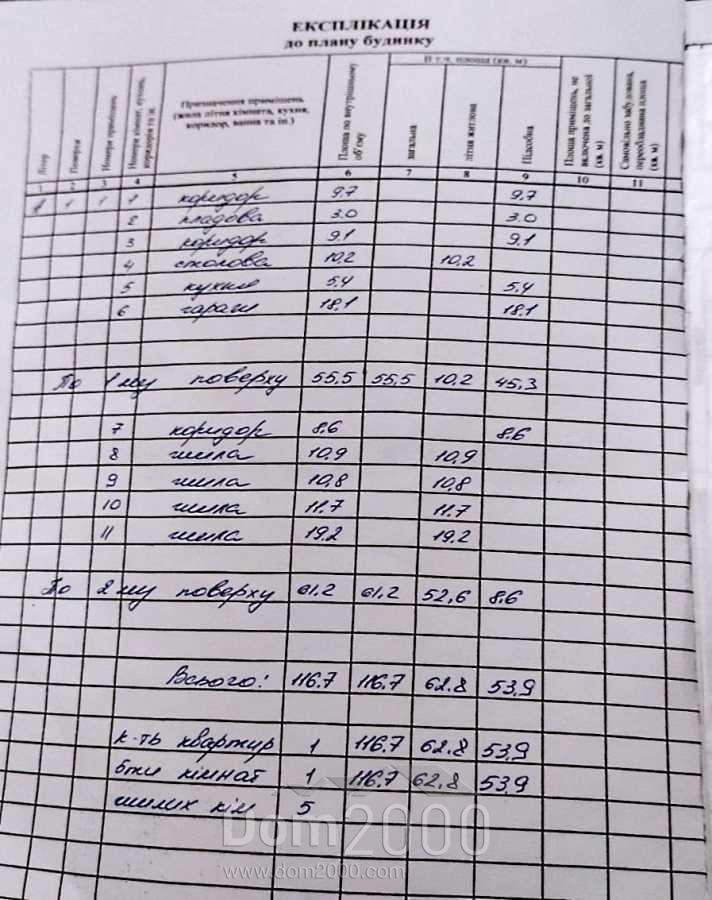 ЕКСПЛІКАЦІЯ
до плану будинку
Літер
Поверхи
Номери приміщень
Номери кімнат, кухонь, коридорів та ін.
Призначення приміщень (жила літня кімната, кухня, коридор, ванна та ін.)
Площа по внутрішньому об'єму
В т.ч. площа (кв. м)
загальна
літня житлова
Підсобна
Площа приміщень, не включена до загальної (кв. м)
Самовільно забудована, переобладнана площа (кв. м)
1 2 3 4 5 6 7 8 9 10 11
А 1 1 1 коридор 9.7 9.7
2 кладова 3.0 3.0
3 коридор 9.1 9.1
4 столова 10,2 10,2
5 кухня 5,4 5,4
6 гараж 18,1 18,1
По 1 му поверху 55,5 55,5 10,2 45,3
7 коридор 8.6 8.6
8 жила 10,9 10,9
9 жила 10,8 10,8
10 жила 11.7 11.7
11 жила 19,2 19,2
По 2 му поверху 61,2 61,2 52,6 8.6
Всього: 116.7 116.7 62.8 53,9
к-ть квартир 1 116.7 62.8 53,9
кімнат 1 116.7 62,8 53,9
жилих кім 5
Dom2000
www.dom2000.com